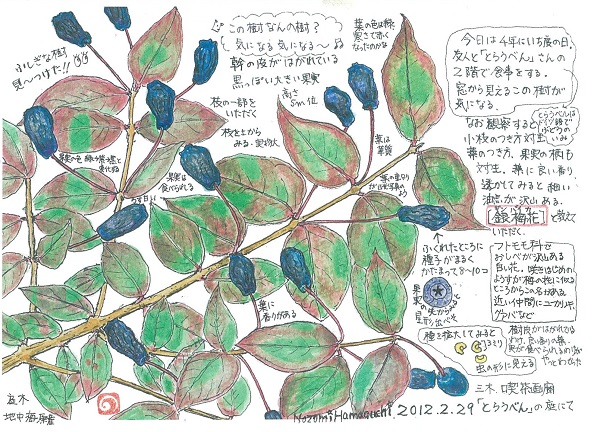 ふしぎな樹
見〜つけた!!
この樹なんの樹?
気になる気になる〜
幹の皮がはがれている
黒っぽい大きい果実
高さ
5m位
枝の一部を
いただく
枝を上から
みる・実物大
果実は
食べられる
葉の色は緑
寒さで赤く
なったのかな
葉は
革質
葉に
香りがある
今日は4年にいち度の日、
友人と「とらうべん」さんの
2階で食事をする。
窓から見えるこの樹が
気になる。
とらうべんは
ドイツ語で
ぶどうの
いみ
なお観察すると
小枝のつき方対生、
葉のつき方、果実の柄も
対生。葉に良い香り
透かしてみると細い
油点が沢山ある。
「銀梅花」と教えて
いただく。
ふくれたところに
種子がまるく
かたまって8〜10コ
フトモモ科で
おしべが沢山ある
白い花。咲きはじめの
ようすが梅の花に似る
ところからこの名がある
近い仲間にユーカリノキ、
グァバなど
種を拡大してみると
3ミリ
虫の形に見える
樹皮がはがれている
わけ、良い香りの葉、
実が食べられるのが
やっとわかった
三木、喫茶画廊
Nozomi Hamaguchi 2012.2.29「とらうべん」の庭にて